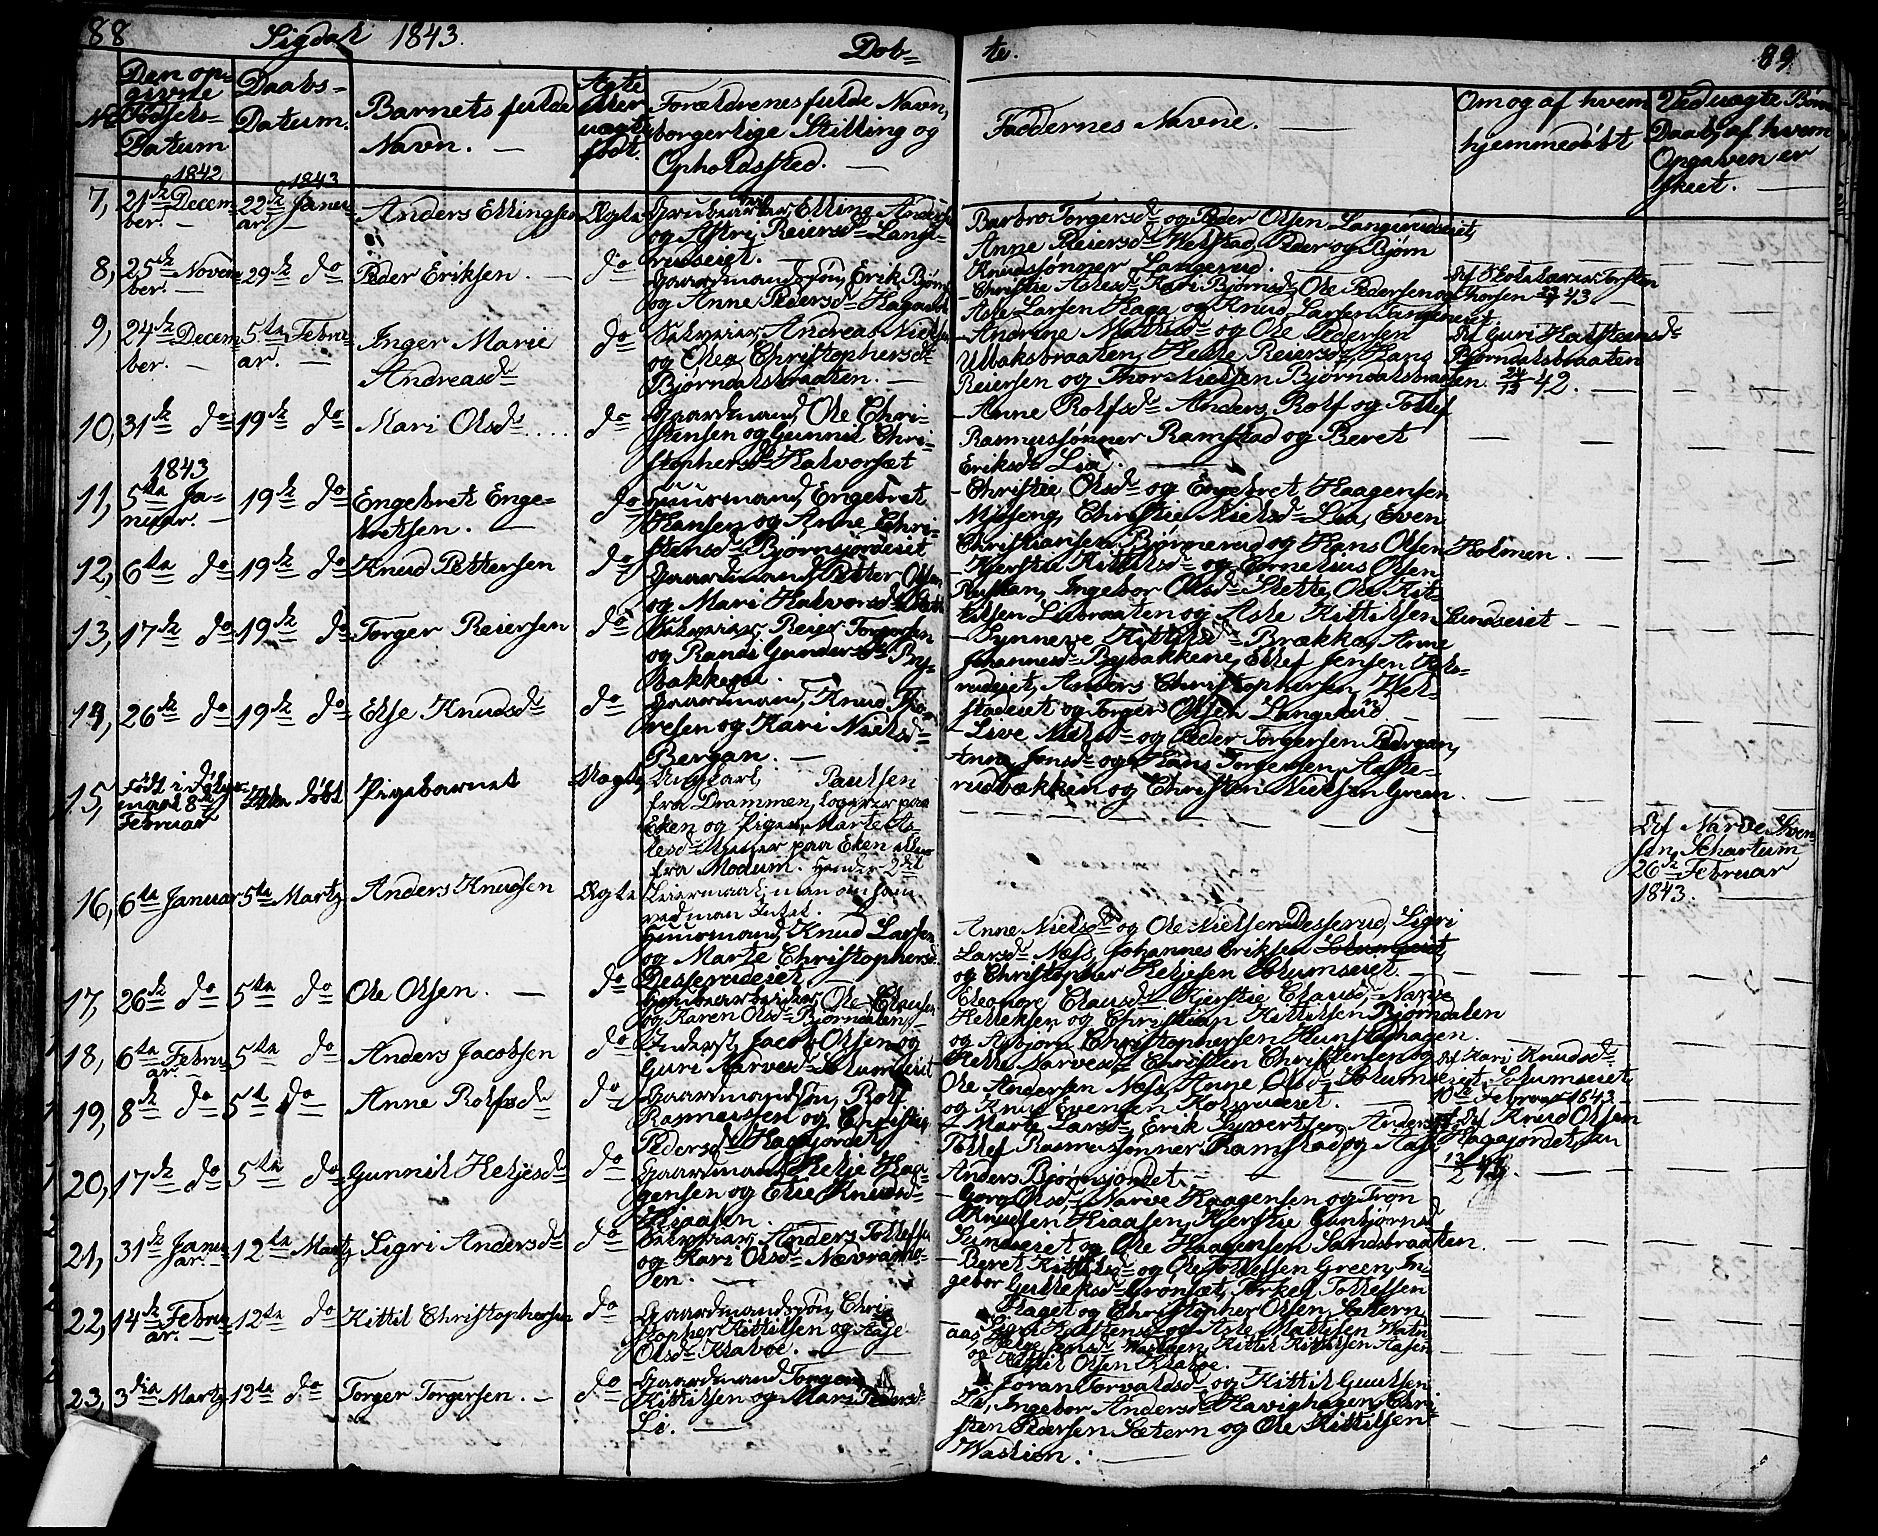 88 Sigdal 1843. Døb=
te. 89.
No
Den op=
givne
Fødsels=
Datum
Daabs=
Datum.
Barnets fulde
Navn. —
Ægte
eller
uægte
født.
Forældrenes fulde Navn,
borgerlige Stilling og
Opholdssted. —
Faddernes Navne. —
Om og af hvem
hjemmedøbt
Ved uægte Børns
Daab, af hvem
Opgaven er
skeet. —
7, 1842 21de Decem=
ber. —
1843 22de Janu=
ar. —
Anders Ellingsen
Ægte
Elling Anders
og Astri Reiersd. Lange=
rudseiet.
Barbro Torgersd. og Peder Olsen Langerudseiet,
Anne Reiersd. Welstad, Peder og Bjørn
Knudssønner Langerud.
8, 25de Novem=
ber. —
29de do
Peder Eriksen. —
do
Gaardmandssøn, Erik Bjørns
og Anne Pedersd. Hagaend
Christie Aslesd. Kari Bjørnsd. Ole Pedersen og
Asle Larsen Haga og Knud Larsen Langerudeiet
Af Skolelærer Torsten
Thorsen 43. —
9, 24de Decem=
ber. —
5te Febru=
ar. —
Inger Marie
Andreasd.
do
Selveier, Andreas Nielsen
og Olea Christophersd.
Bjørndalsbraaten. —
Andrine Mathisd. og Ole Pedersen
Ulbaksbraaten, Helle Reiersd. Hans
Reiersen og Thor Nielsen Bjørndalsbraaten.
Af Guri Halsteensd.
Bjørndalsbraaten
24/12 42. —
10, 31de do
19de do
Mari Olsd. ....
do
Gaardmand, Ole Chri=
stensen og Gunnil Chri=
stophersd. Halvorsæt
Anne Rolfsd. Anders, Rolf og Tollef
Rasmussønner Ramstad og Beret
Eriksd. Lia.
11, 1843 5te Ja=
nuar. —
19de do
Engebret Enge=
bretsen. —
do
Huusmand, Engebret
Hansen og Anne Chri=
stensd. Bjørnsjordeiet
Christie Olsd. og Engebret Haagensen
Mjøseng, Christie Nielsd. Lia, Even
Christiansen Bjørnerud og Hans Olsen Holmen. —
12, 6te do
19de do
Knud Pettersen
do
Gaardmand, Petter Olsen
og Mari Halvorsd.
Kjerstie Kittilsd. og Cornelius Olsen
Rustan, Ingebor Olsd. Slette, Ole Kit=
tilsen Lisbraaten og Asle Kittilsen Lundseiet —
13, 17de do
19de do
Torger Reiersen
do
Selveier, Reier Torgersen
og Randi Gundersd. By=
bakken.
Synneve Kittilsd. Brække, Anne
Johannesd. Bybakkene, Ellef Jensen
rudeiet, Anders Christophersen Wel=
stadeiet og Torger Olsen Langerud
14, 26de do
19de do
Else Knudsd.
do
Gaardmand, Knud Tho=
resen og Kari Nielsd.
Bergan. —
Live Nielsd. og Peder Torgersen Bergan,
Anne Jensd. og Hans Torgersen Aasle=
rudbakken og Christen Nielsen Green.
15, Født i Følge=
8de
Februar
Ikke døbt
Pigebarnet
Uægte
Ungkarl, Paulsen
fra Drammen, logerer paa
Eken og Pigen Marte A=
lesd. tjener paa Eken
fra Modum. Hendes 2det
Leiermaal; man om ham
ved man Intet.
Af Narve Sven=
sen Schartum
26de Februar
1843. —
16, 6te Januar
5te Martz
Anders Knudsen
Ægte
Huusmand, Knud Larsen
og Marte Christophersd.
Desserudeiet. —
Anne Nielsd. og Ole Nielsen Desserud, Sigri
Larsd. Næss, Johannes Eriksen
og Christopher Heljesen Solumseiet.
17, 26de do
5te do
Ole Olsen. —
do
Grubearbeider, Ole Clausen
og Karen Olsd. Bjørndalen
Eleonore Clausd. Kjerstie Clausd. Narve
Helleksen og Christian Kittilsen Bjørndalen
og Asbjørn Christophersen Hunstadhagen.
18, 6te Febru=
ar. —
5te do
Anders Jacobsen
do
Inderst, Jacob Olsen og
Guri Narvesd. Solumseiet
Helle Narvesd. Christen Christensen og
Ole Andersen Næss, Anne Olsd. Solumseiet
og Knud Evensen Kolsrudeiet. —
Af Kari Knudsd.
Solumseiet,
10de Februar 1843. —
19, 8de do
5te do
Anne Rolfsd.
do
Gaardmandssøn, Rolf
Rasmussen og Christie
Pedersd. Hagajordet
Marte Larsd. Erik Syvertsen, Anders og
Tollef Rasmussønner Ramstad og
Anders Bjørnsjordet.
Af Knud Olsen
Hagajordet, den
13/2 43.
20, 17de do
5te do
Gunnil Heljesd.
do
Gaardmand, Helje Haa=
gensen og Elie Knudsd.
Kraasen.
Goro Olsd. Narve Haagensen og Tron
Knudsen Kraasen, Kjerstie Gunbjørnsd.
Lundseiet og Ole Haagensen Sandsbraaten.
21, 31de Janu=
ar. —
12te Martz
Sigri Andersd.
do
Selveier, Anders Tollefsen
og Kari Olsd. Nævramo=
en.
Beret Kittilsd. og Ole Tollefsen Green, In=
gebor Gulleksd. Grønsæt, Torkel Tollefsen
Plaget og Christopher Olsen Sætern,
22, 14de Febru=
ar. —
12te do
Kittil Christophersen
do
Gaardmandssøn, Chri=
stopher Kittilsen og Aase
Olsd. Kraboe. —
Sigri Halstensd. og Asle Mattisen Watn=
aas,
og Kittil Olsen Kraboe. —
23, 3die Martz
12te do
Torger Torgersen. —
do
Gaardmand Torger
Kittilsen og Mari
Li. —
Jøran Torvaldsd. og Kittil Guulsen
Li, Ingebor Andersd. Havighagen, Chri=
sten Pedersen Sætern og Ole Kittilsen
Waslien. —